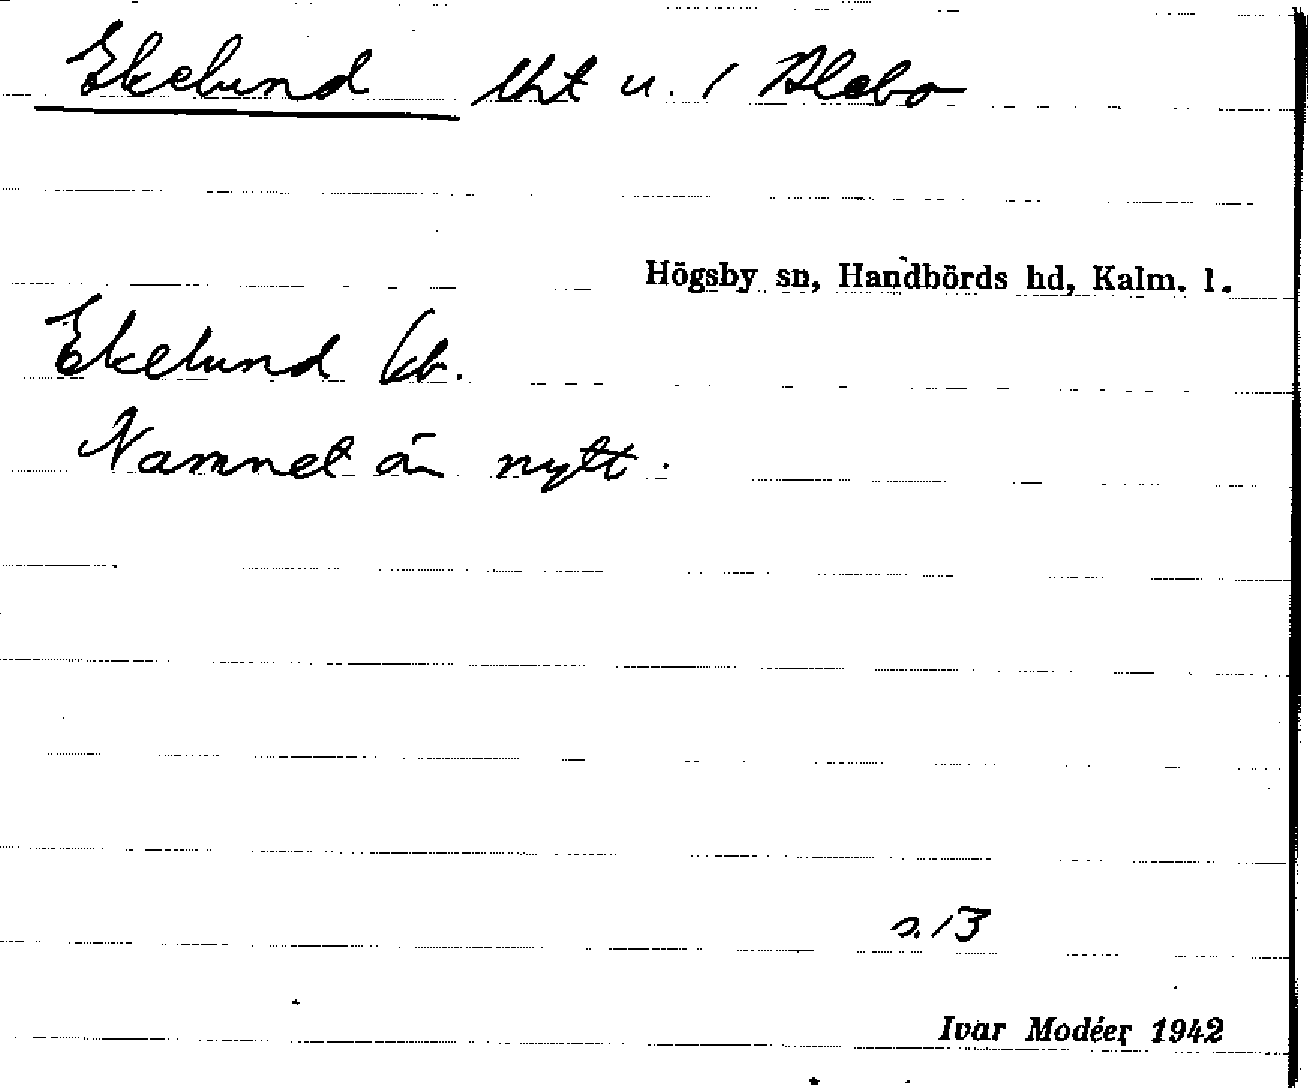 Ekelund lht u. / Alebo
Högsby sn, Handbörds hd, Kalm. l.
Ekelund lht.
Namnet är nytt.
s. 13
Ivar Modéer 1942